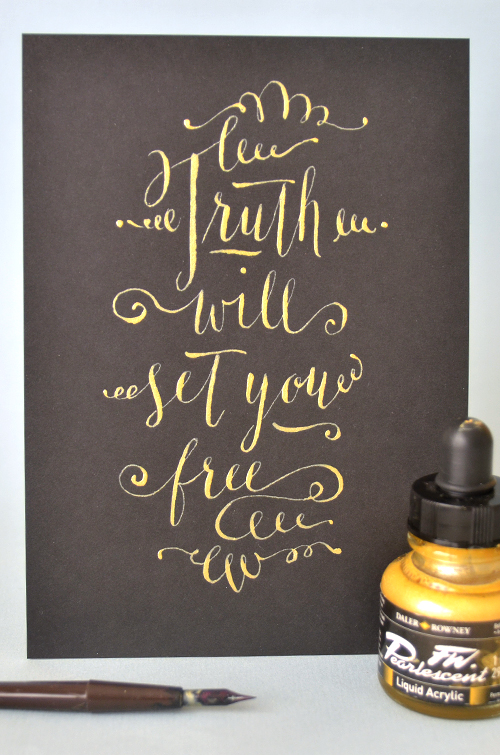 the
Truth
will
set you
free
DALER ROWNEY
FW.
Pearlescent
Liquid Acrylic